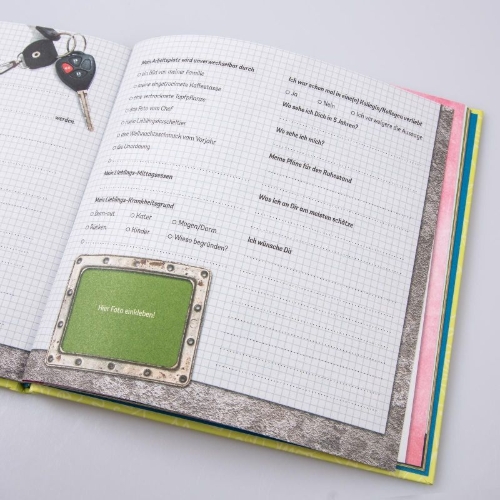 werden.
Mein Arbeitsplatz wird unverwechselbar durch
ein Bild von meiner Familie
meine eingetrocknete Kaffeetasse
eine vertrocknete Topfpflanze
das Foto vom Chef
meine Lieblingskuscheltier
den Weihnachtsschmuck vom Vorjahr
die Unordnung
Mein Lieblings-Mittagessen
Mein Lieblings-Krankheitsgrund
Darm-inf.
Kater
Magen/Darm
Rücken
Kinder
Wieso begründen?
Hier Foto einkleben!
Ich war schon mal in eine(n) Kollegin/Kollegen verliebt
Ja
Nein
Ich verweigere die Aussage
Wo sehe ich Dich in 5 Jahren?
Wo sehe ich mich?
Meine Pläne für den Ruhestand
Was ich an Dir am meisten schätze
Ich wünsche Dir